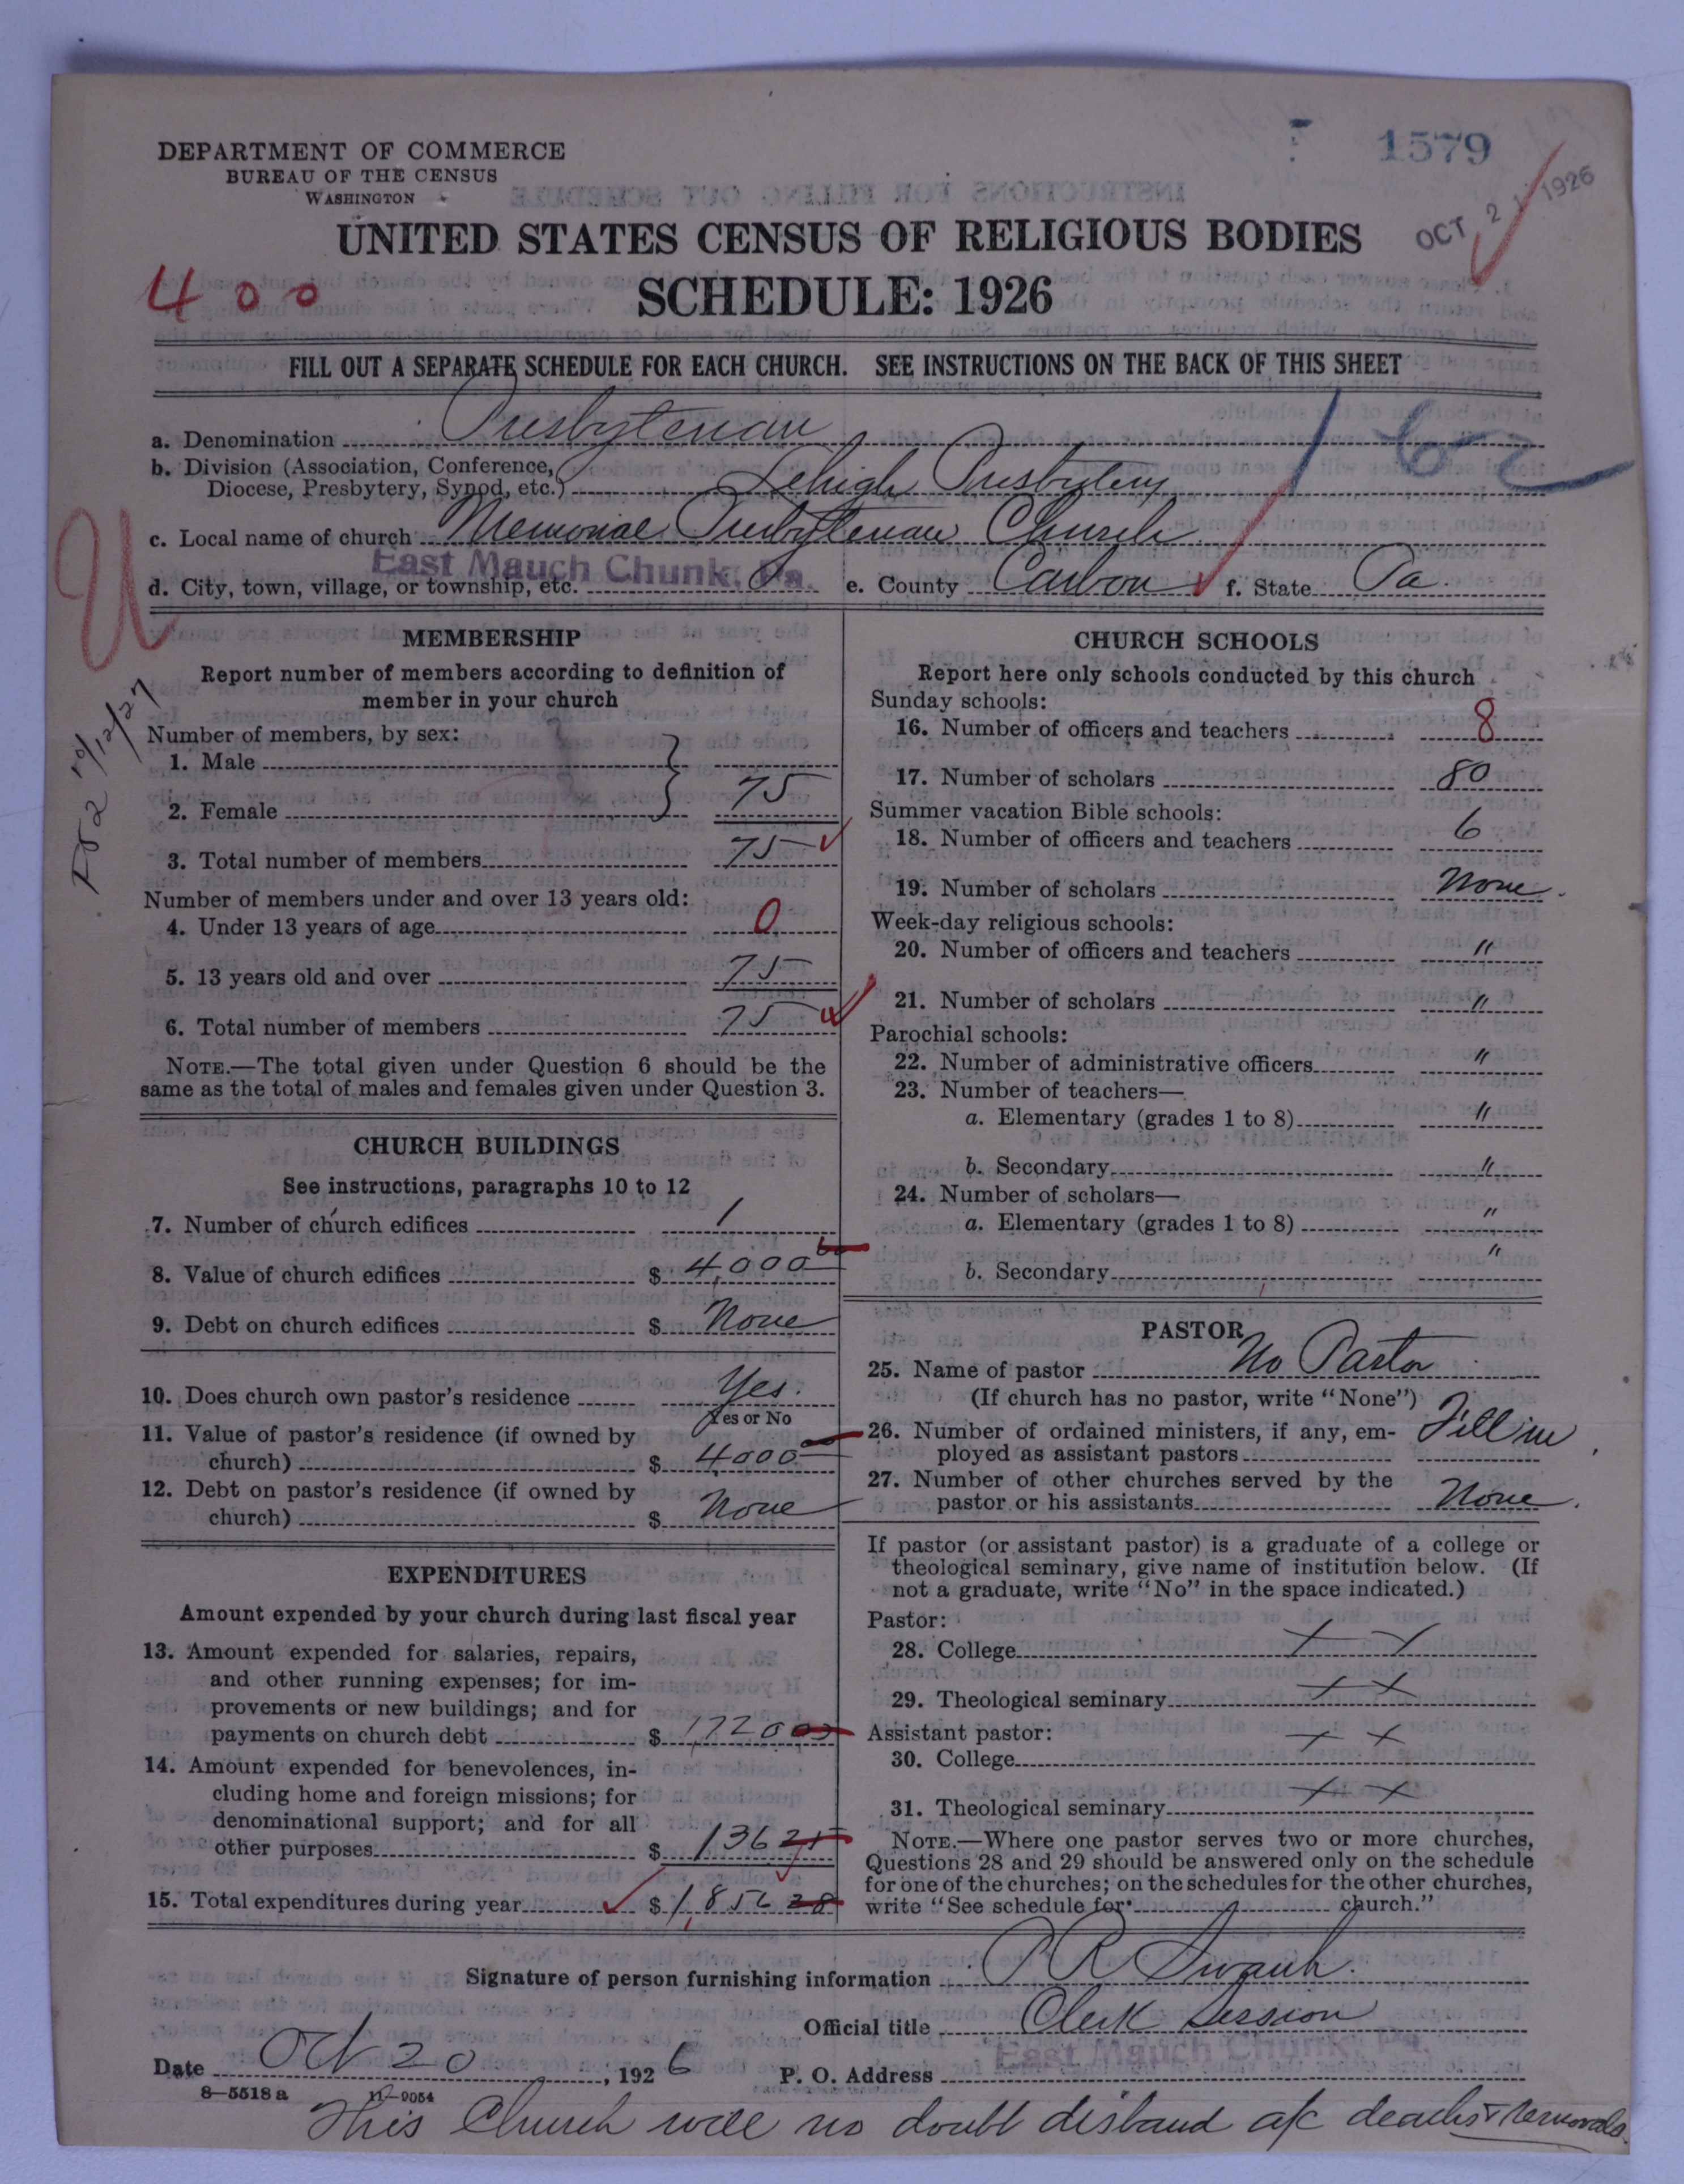 1579
OCT 2 1926
DEPARTMENT OF COMMERCE
BUREAU OF THE CENSUS
WASHINGTON
UNITED STATES CENSUS OF RELIGIOUS BODIES
400
SCHEDULE: 1926
FILL OUT A SEPARATE SCHEDULE FOR EACH CHURCH. SEE INSTRUCTIONS ON THE BACK OF THIS SHEET
a. Denomination Presbyterian
b. Division (Association, Conference,
Diocese, Presbytery, Synod, etc.) Lehigh Presbytery
c. Local name of church Memorial Presbyterian Church
d. City, town, village, or township, etc. East Mauch Chunk, Pa. e. County Carbon f. State Pa.
MEMBERSHIP
Report number of members according to definition of
member in your church
Number of members, by sex:
1. Male
2. Female } 75
3. Total number of members 75
Number of members under and over 13 years old:
4. Under 13 years of age 0
5. 13 years old and over 75
6. Total number of members 75
NOTE.—The total given under Question 6 should be the
same as the total of males and females given under Question 3.
CHURCH BUILDINGS
See instructions, paragraphs 10 to 12
7. Number of church edifices 1
8. Value of church edifices $ 4,000 00
9. Debt on church edifices $ None
10. Does church own pastor's residence Yes.
Yes or No
11. Value of pastor's residence (if owned by
church) $ 4000 00
12. Debt on pastor's residence (if owned by
church) $ None
EXPENDITURES
Amount expended by your church during last fiscal year
13. Amount expended for salaries, repairs,
and other running expenses; for im-
provements or new buildings; and for
payments on church debt $ 1,720
14. Amount expended for benevolences, in-
cluding home and foreign missions; for
denominational support; and for all
other purposes $ 136
15. Total expenditures during year $ 1,856
CHURCH SCHOOLS
Report here only schools conducted by this church
Sunday schools:
16. Number of officers and teachers 8
17. Number of scholars 80
Summer vacation Bible schools:
18. Number of officers and teachers 6
19. Number of scholars None.
Week-day religious schools:
20. Number of officers and teachers "
21. Number of scholars "
Parochial schools:
22. Number of administrative officers "
23. Number of teachers—
a. Elementary (grades 1 to 8) "
b. Secondary "
24. Number of scholars—
a. Elementary (grades 1 to 8) "
b. Secondary "
PASTOR
25. Name of pastor No Pastor
(If church has no pastor, write "None")
26. Number of ordained ministers, if any, em-
ployed as assistant pastors Fill in
27. Number of other churches served by the
pastor or his assistants None.
If pastor (or assistant pastor) is a graduate of a college or
theological seminary, give name of institution below. (If
not a graduate, write "No" in the space indicated.)
Pastor:
28. College x x
29. Theological seminary x x
Assistant pastor:
30. College x x
31. Theological seminary x x
NOTE.—Where one pastor serves two or more churches,
Questions 28 and 29 should be answered only on the schedule
for one of the churches; on the schedules for the other churches,
write "See schedule for church."
Signature of person furnishing information
Official title Clerk Session
Date Oct 20, 1926 P. O. Address East Mauch Chunk, Pa.
8—5518 a 11—9054
This Church will no doubt disband a/c deaths & removals.